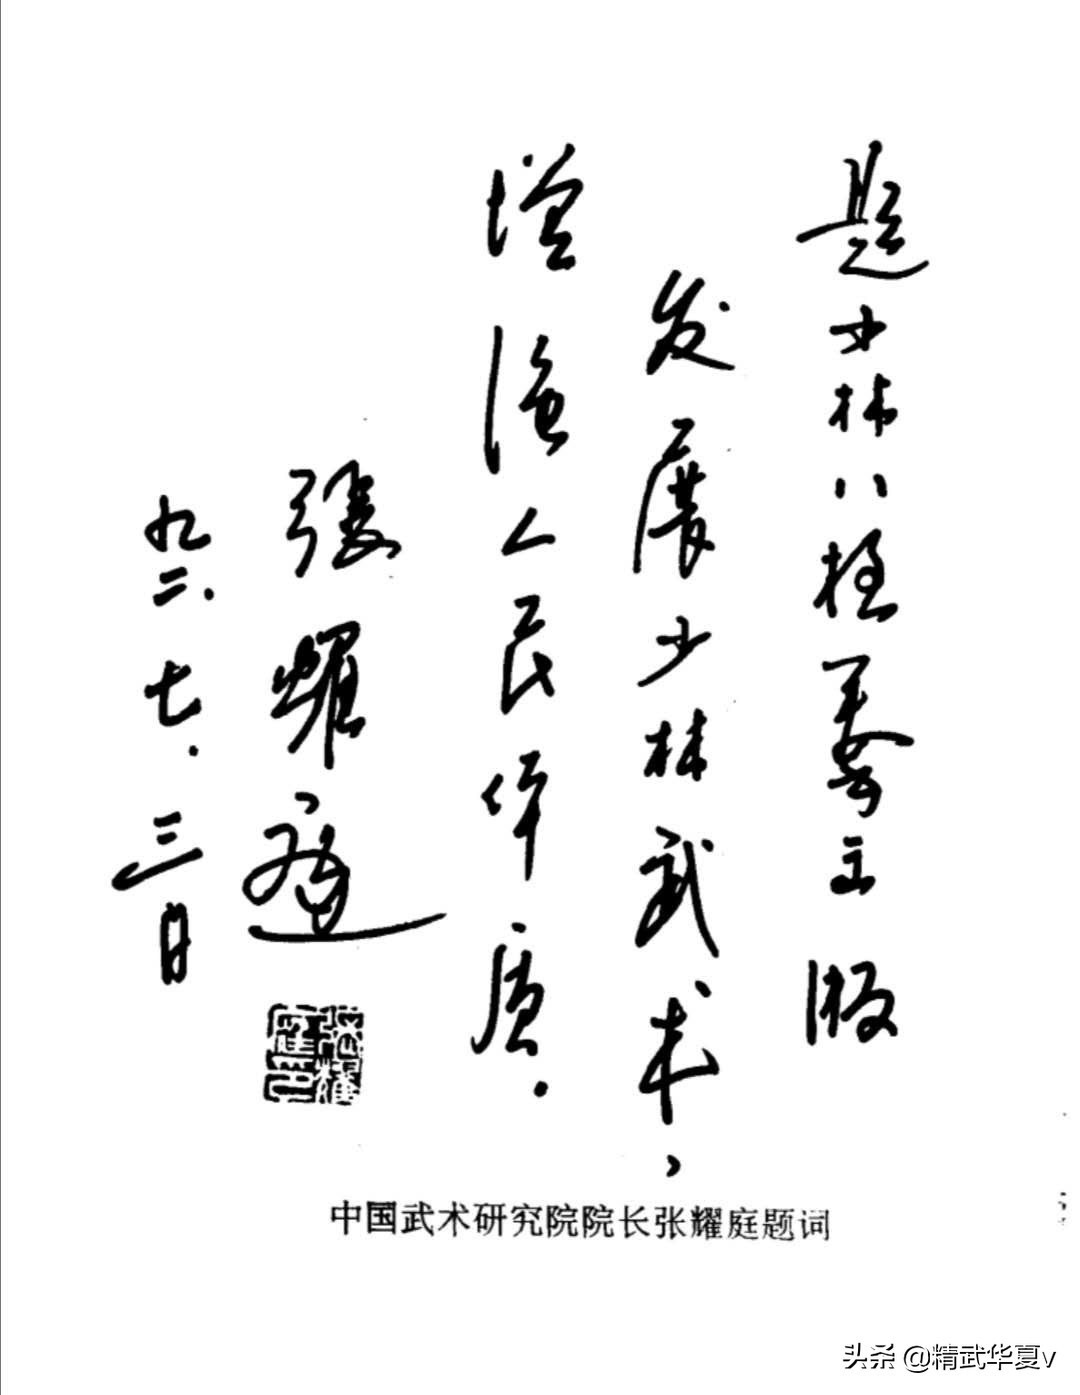 题少林八极拳出版
发展少林武术、
增强人民体质.
张耀庭
九二.七.三日
中国武术研究院院长张耀庭题词
头条 @精武华夏v